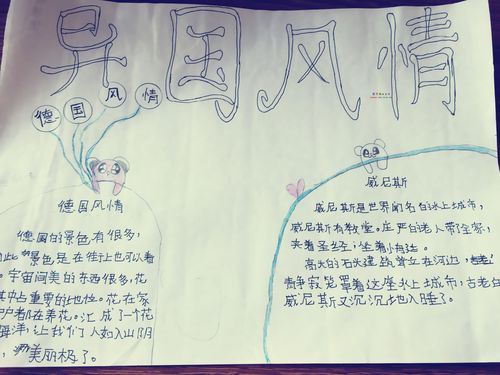 异国风情
德国风情
德国风情
德国的景色有很多,
景色是在街上也可以看
宇宙间美的东西很多,花
其中占重要的地位。花在家
户都在养花。汇成了一个花
海洋,让我们人如入山阴
,美丽极了。
威尼斯
威尼斯是世界闻名的水上城市,
威尼斯有教堂。庄严的老人带了家,
夹着圣经,坐着小舟法。
高大的石头建筑耸立在河边,
静寂笼罩着这座水上城市,古老的
威尼斯又沉沉地入睡了。